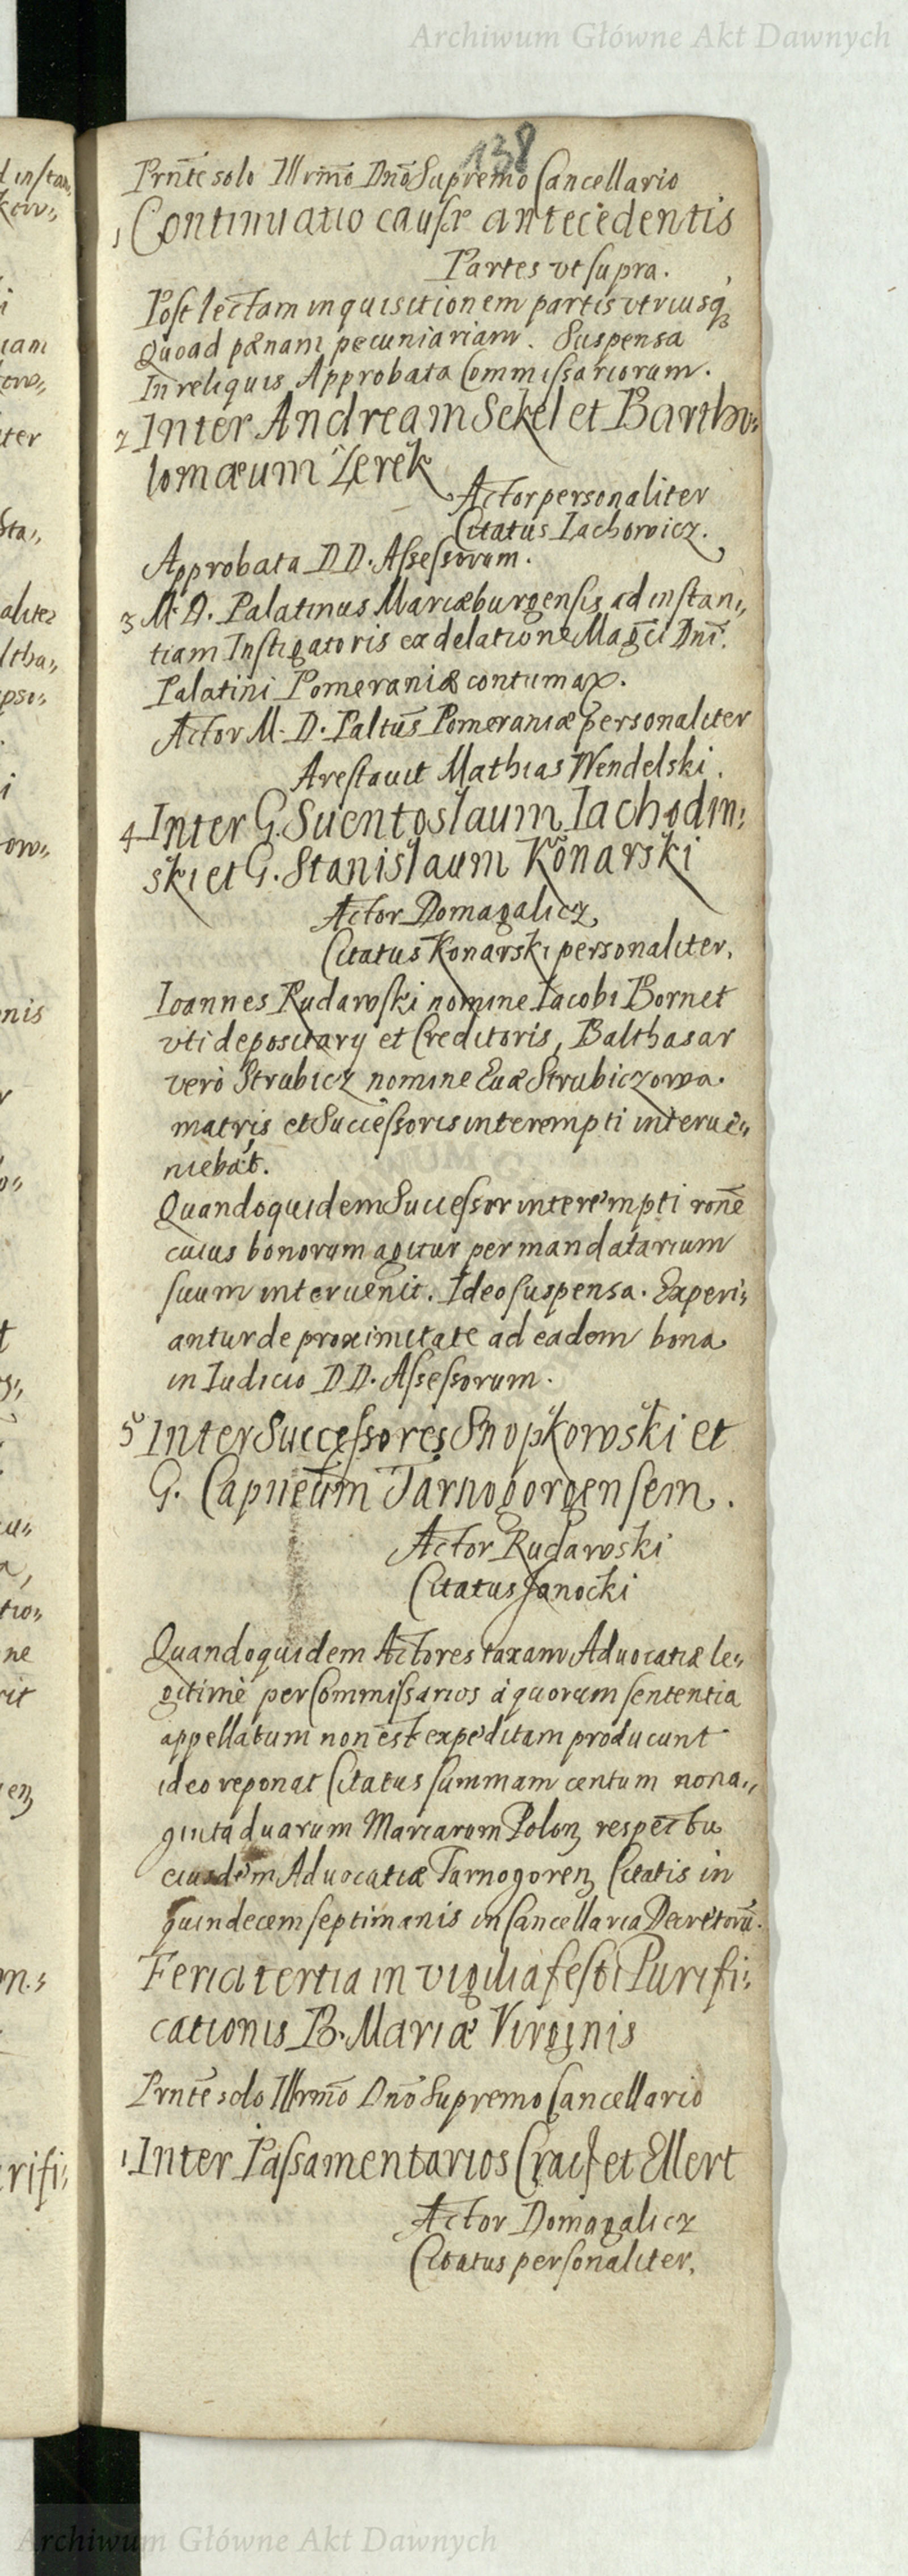 Archiwum Główne Akt Dawnych
138
Prnte solo Illrmo Dno Supremo Cancellario
1 Continuatio causæ antecedentis
Partes vt supra.
Post lectam inquisitionem partis vtriusq3
Quoad pænam pecuniariam. Suspensa
In reliquis Approbata Commissariorum.
2 Inter Andream Sekel et Bartho,,
lomæum Zerek
Actor personaliter
Citatus Iachowicz.
Approbata DD. Assessorum.
3 M. D. Palatinus Mariæburgensis ad instan,,
tiam Instigatoris ex delatione Magci Dni.
Palatini Pomeraniæ contumax.
Actor M. D. Paltus Pomeraniæ personaliter
Arestauit Mathias Wendelski.
4 Inter G. Suentoslaum Iachodin,,
ski et G. Stanislaum Konarski
Actor Domagalicz
Citatus Konarski personaliter.
Ioannes Rudawski nomine Iacobi Bornet
vti depositarij et Creditoris, Balthasar
verò Strubicz nomine Euæ Strubiczowa
matris et Successoris interempti interue,,
niebāt.
Quandoquidem Successor interempti rone
cuius bonorum agitur per mandatarium
suum interuenit. Ideo suspensa. Experi,,
antur de proximitate ad eadem bona
in Iudicio DD. Assessorum.
5 Inter Successores Snopkowski et
G. Capneum Tarnogorgensem.
Actor Rudawski
Citatus Janocki
Quandoquidem Actores taxam Aduocatiæ le,,
gitimè per Commissarios à quorum sententia
appellatum non est expeditam producunt
ideo reponat Citatus summam centum nona,,
ginta duarum Marcarum Polon respectu
eiusdem Aduocatiæ Tarnogoren Citatis in
quindecem septimanis in Cancellaria Decretorū.
Feria tertia in vigilia festi Purifi,,
cationis B. Mariæ Virginis
Prnte solo Illrmo Dno Supremo Cancellario
1 Inter Passamentarios et Ellert
Actor Domagalicz
Citatus personaliter.
Archiwum Główne Akt Dawnych